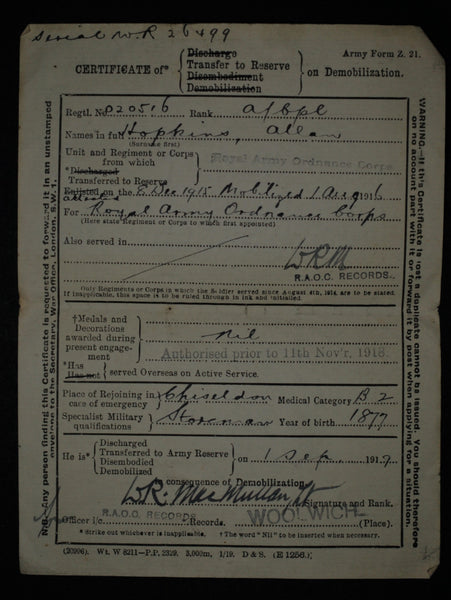 Serial W R 26499
Army Form Z. 21.
CERTIFICATE of* { Discharge
Transfer to Reserve
Disembodiment
Demobilization } on Demobilization.
Regtl. No. 020516 Rank A/Cpl
Names in full Hopkins, Allan
(Surname first)
Unit and Regiment or Corps
from which
*Discharged
Transferred to Reserve
Royal Army Ordnance Corps
Enlisted on the 8 Dec 1915 Mobilized 1 Aug 1916
Attested
For Royal Army Ordnance Corps
(Here state Regiment or Corps to which first appointed)
Also served in
R.A.O.C. RECORDS.
Only Regiments or Corps in which the Soldier served since August 4th, 1914, are to be stated.
If inapplicable, this space is to be ruled through in ink and initialled.
†Medals and
Decorations
awarded during
present engage-
ment
Nil
Authorised prior to 11th Nov'r, 1918.
*Has
Has not } served Overseas on Active Service.
Place of Rejoining in
case of emergency } Chiseldon Medical Category B 2
Specialist Military
qualifications } Storeman Year of birth 1877
He is* { Discharged
Transferred to Army Reserve
Disembodied
Demobilized } on 1 Sep 1919
in consequence of Demobilization.
W.R. MacMullan Lt Signature and Rank.
R.A.O.C. RECORDS WOOLWICH
Officer i/c Records. (Place).
* Strike out whichever is inapplicable. † The word "Nil" to be inserted when necessary.
(20996). Wt. W 6211—P.P. 2329. 5,000m. 1/19. D & S. (E 1256.)
WARNING.—If this Certificate is lost a duplicate cannot be issued. You should therefore
on no account part with it or forward it by post when applying for a situation.
N.B.—Any person finding this Certificate is requested to forward it in an unstamped
envelope to the Secretary, War Office, London, S.W. 1.